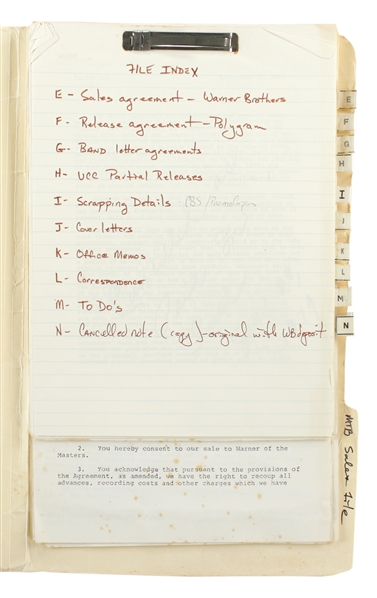 FILE INDEX
E - Sales agreement - Warner Brothers
F - Release agreement - Polygram
G - BAND letter agreements
H - UCC Partial Releases
I - Scrapping Details CBS/
J - Cover letters
K - Office Memos
L - Correspondence
M - To Do's
N - Cancelled note (copy) - original with WB deposit
2. You hereby consent to our sale to Warner of the
Masters.
3. You acknowledge that pursuant to the provisions of
the Agreement, as amended, we have the right to recoup all
advances, recording costs and other charges which we have
E
F
G
H
I
J
K
L
M
N
MTB Sales File